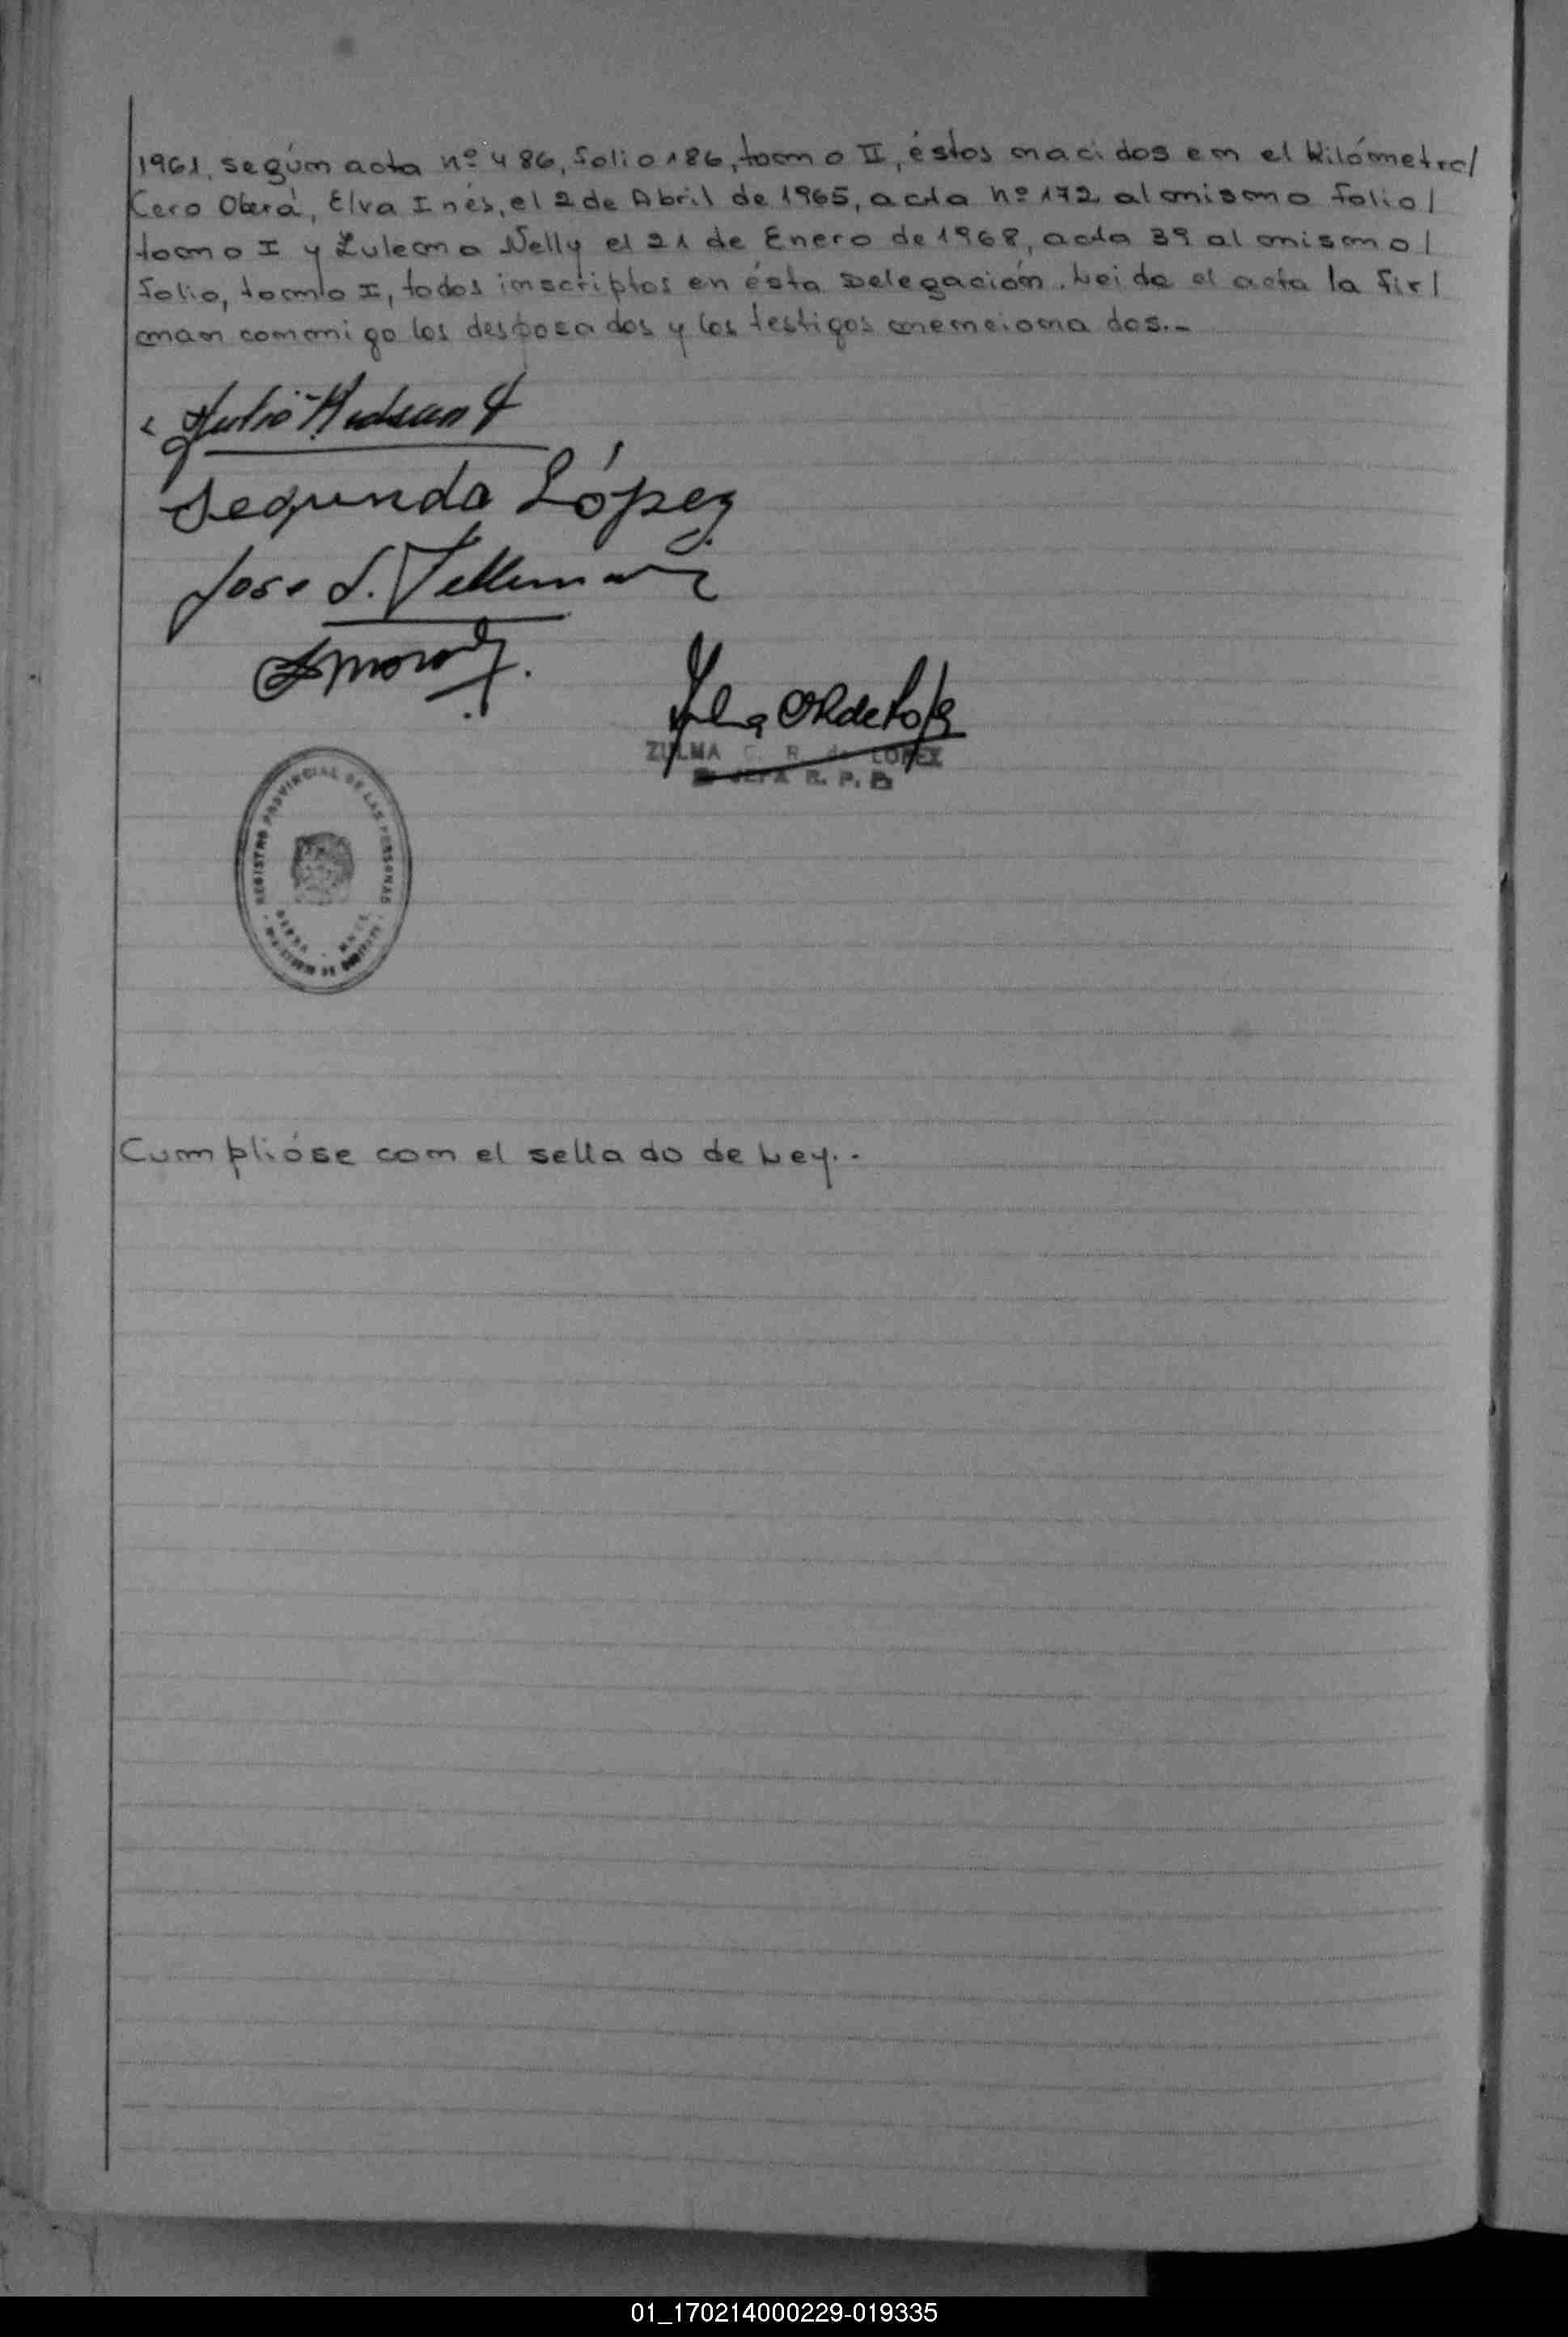 1961, según acta nº 486, folio 186, tomo II, éstos nacidos en el Kilómetro/
Cero Oberá, Elva Inés, el 2 de Abril de 1965, acta nº 172 al mismo folio/
tomo I y Zulema Nelly el 21 de Enero de 1968, acta 39 al mismo/
folio, tomo I, todos inscriptos en ésta Delegación. Leida el acta la fir/
man conmigo los desposados y los testigos mencionados.-
Julio
Segunda López
Jose S.
ZULMA C. R. de LOPEZ
JEFA R. P. P.
REGISTRO PROVINCIAL DE LAS PERSONAS
MINISTERIO DE GOBIERNO
Cumplióse con el sellado de Ley.-
01_170214000229-019335